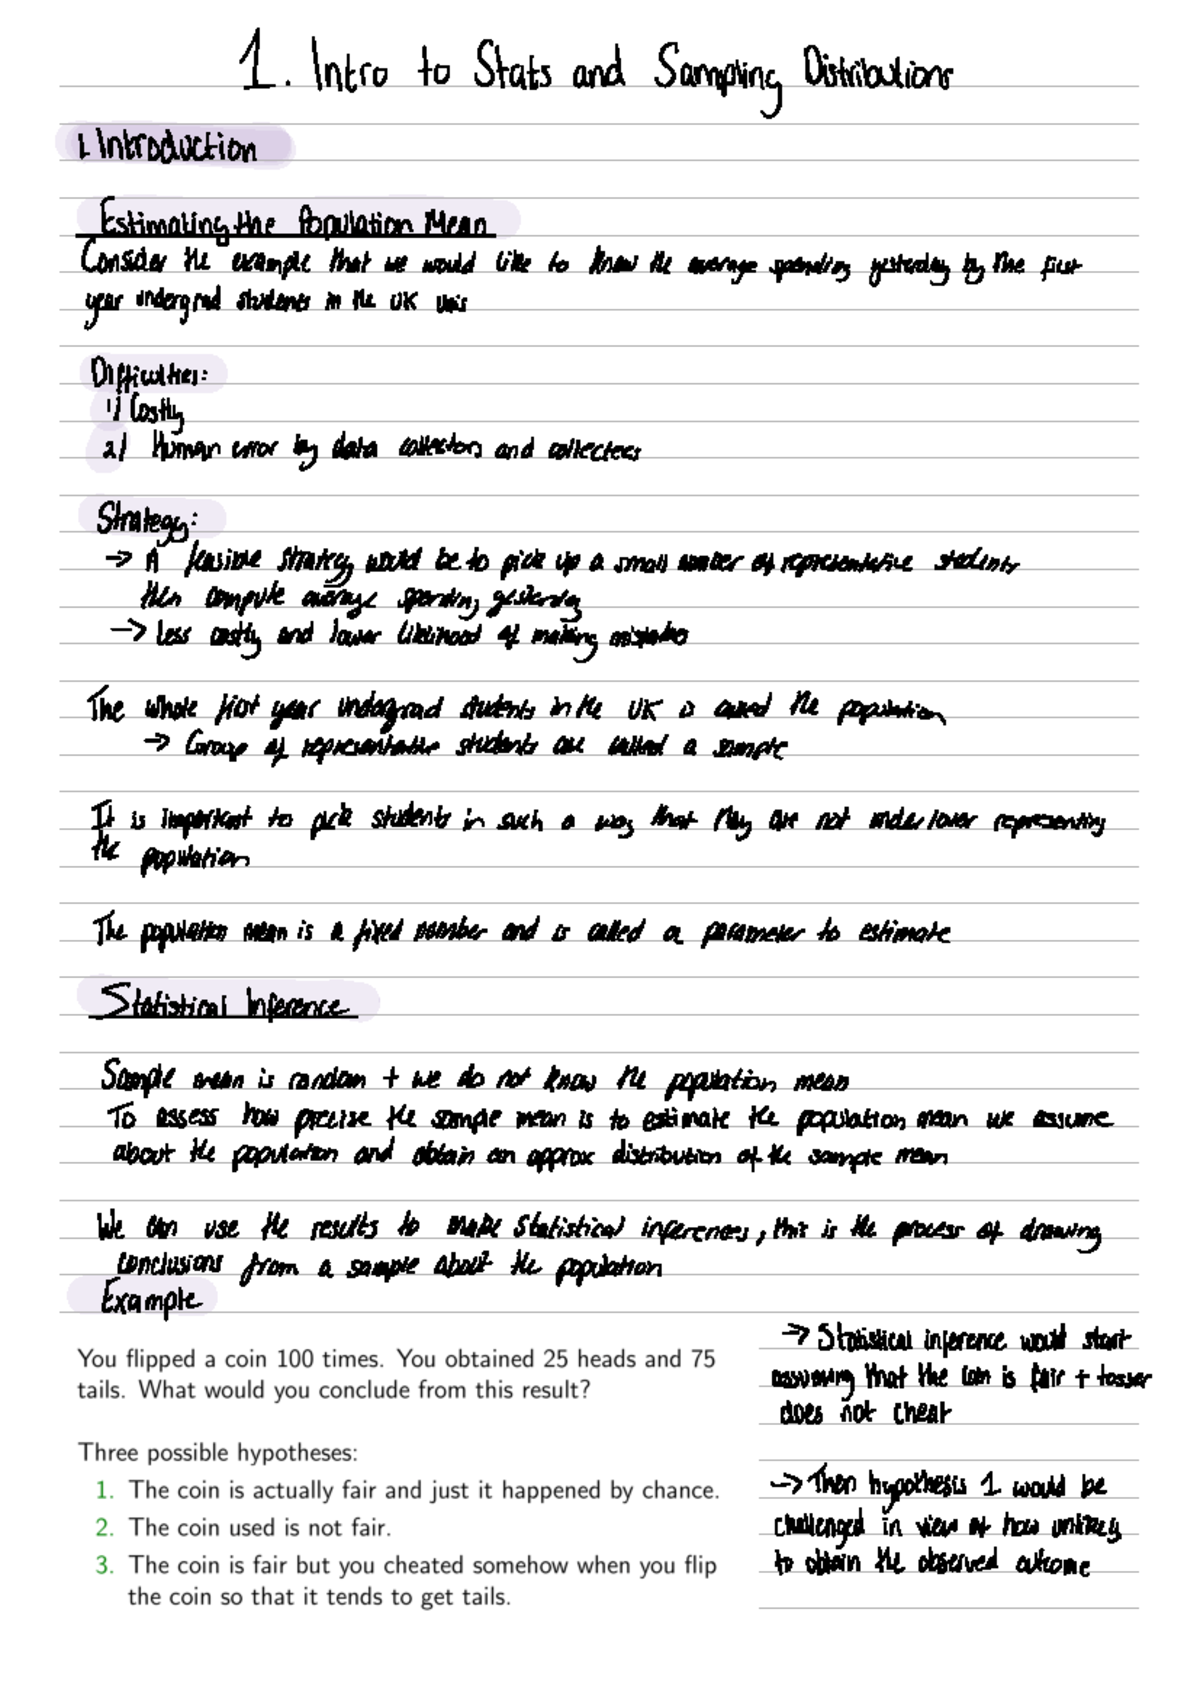 1. Intro to Stats and Sampling Distributions
1. Introduction
Estimating the Population Mean
Consider the example that we would like to know the average spending yesterday by the first
year undergrad students in the UK unis
Difficulties:
1) Costly
2) Human error by data collectors and collectees
Strategy:
→ A feasible strategy would be to pick up a small number of representative students
then compute average spending yesterday
→ less costly and lower likelihood of making mistakes
The whole first year undergrad students in the UK is called the population
→ Group of representative students are called a sample
It is important to pick students in such a way that they are not under/over representing
the population
The population mean is a fixed number and is called a parameter to estimate
Statistical Inference
Sample mean is random + we do not know the population mean
To assess how precise the sample mean is to estimate the population mean we assume
about the population and obtain an approx distribution of the sample mean
We can use the results to make statistical inferences, this is the process of drawing
conclusions from a sample about the population
Example
You flipped a coin 100 times. You obtained 25 heads and 75
tails. What would you conclude from this result?
Three possible hypotheses:
1. The coin is actually fair and just it happened by chance.
2. The coin used is not fair.
3. The coin is fair but you cheated somehow when you flip
the coin so that it tends to get tails.
→ Statistical inference would start
assuming that the coin is fair + tosser
does not cheat
→ Then hypothesis 1 would be
challenged in view of how unlikely
to obtain the observed outcome